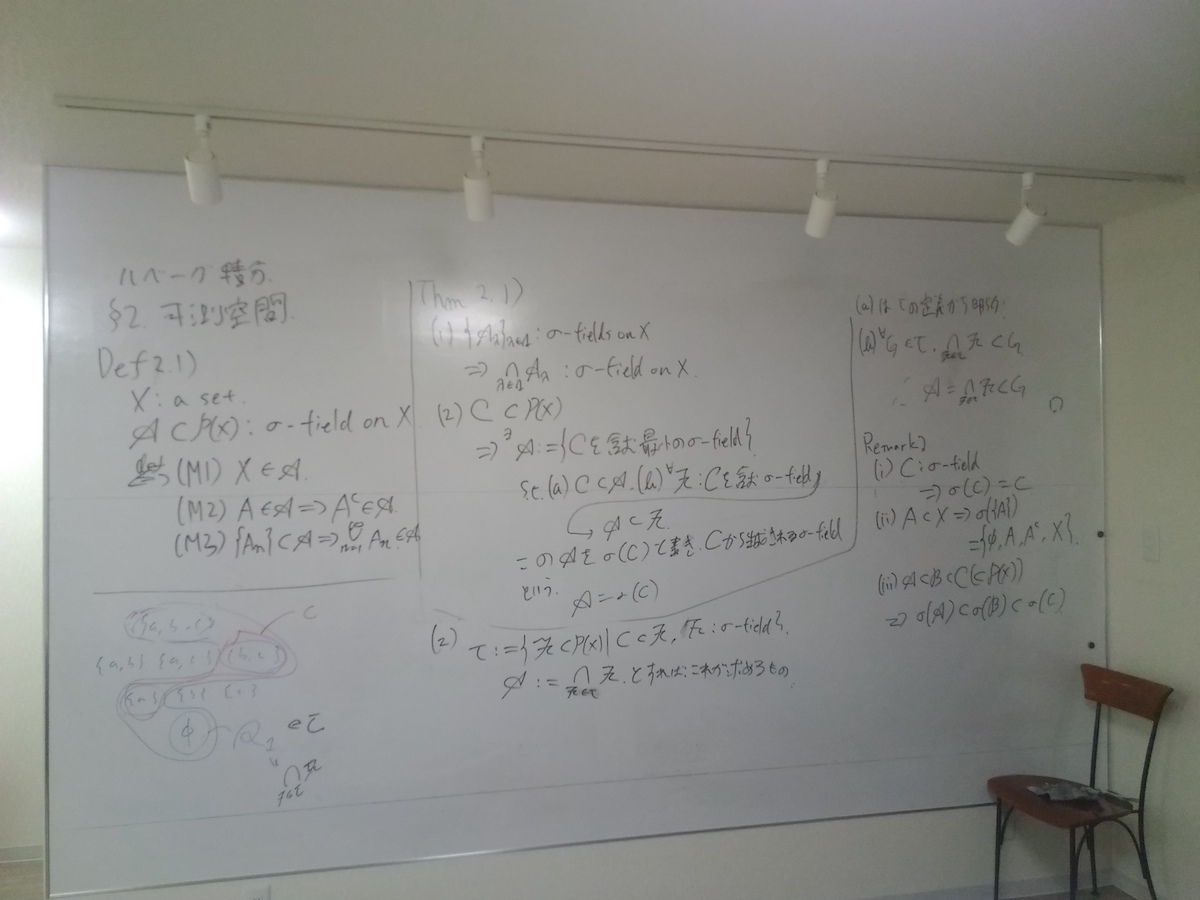 ルベーグ積分.
§2. 可測空間.
Def 2.1)
X: a set.
𝒜 ⊂ P(X): σ-field on X
def (M1) X ∈ 𝒜.
(M2) A ∈ 𝒜 => Aᶜ ∈ 𝒜.
(M3) {An} ⊂ 𝒜 => ∞∪n=1 An ∈ 𝒜
{a, b, c}
C
{a, b} {a, c} {b, c}
{a} {b} {c}
φ
∈ τ
∩ℱ∈τ ℱ
Thm 2.1)
(1) {𝒜λ}λ∈Λ: σ-fields on X
=> ∩λ∈Λ 𝒜λ: σ-field on X.
(2) C ⊂ P(X)
=> ∃𝒜 := {Cを含む最小のσ-field}
s.t. (a) C ⊂ 𝒜. (b) ∀ℱ: Cを含むσ-field,
𝒜 ⊂ ℱ.
この𝒜をσ(C)と書き、Cから生成されるσ-field
という.
𝒜 = σ(C)
(2) τ := {ℱ ⊂ P(X) | C ⊂ ℱ, ℱ: σ-field}.
𝒜 := ∩ℱ∈τ ℱ. とすれば、これが求めるもの.
(a) はτの定義から明らか.
(b) ∀G ∈ τ. ∩ℱ∈τ ℱ ⊂ G
∴ 𝒜 = ∩ℱ∈τ ℱ ⊂ G
□
Remark)
(i) C: σ-field
=> σ(C) = C
(ii) A ⊂ X => σ({A})
= {φ, A, Aᶜ, X}.
(iii) 𝒜 ⊂ B ⊂ C (⊂ P(X))
=> σ(𝒜) ⊂ σ(B) ⊂ σ(C)